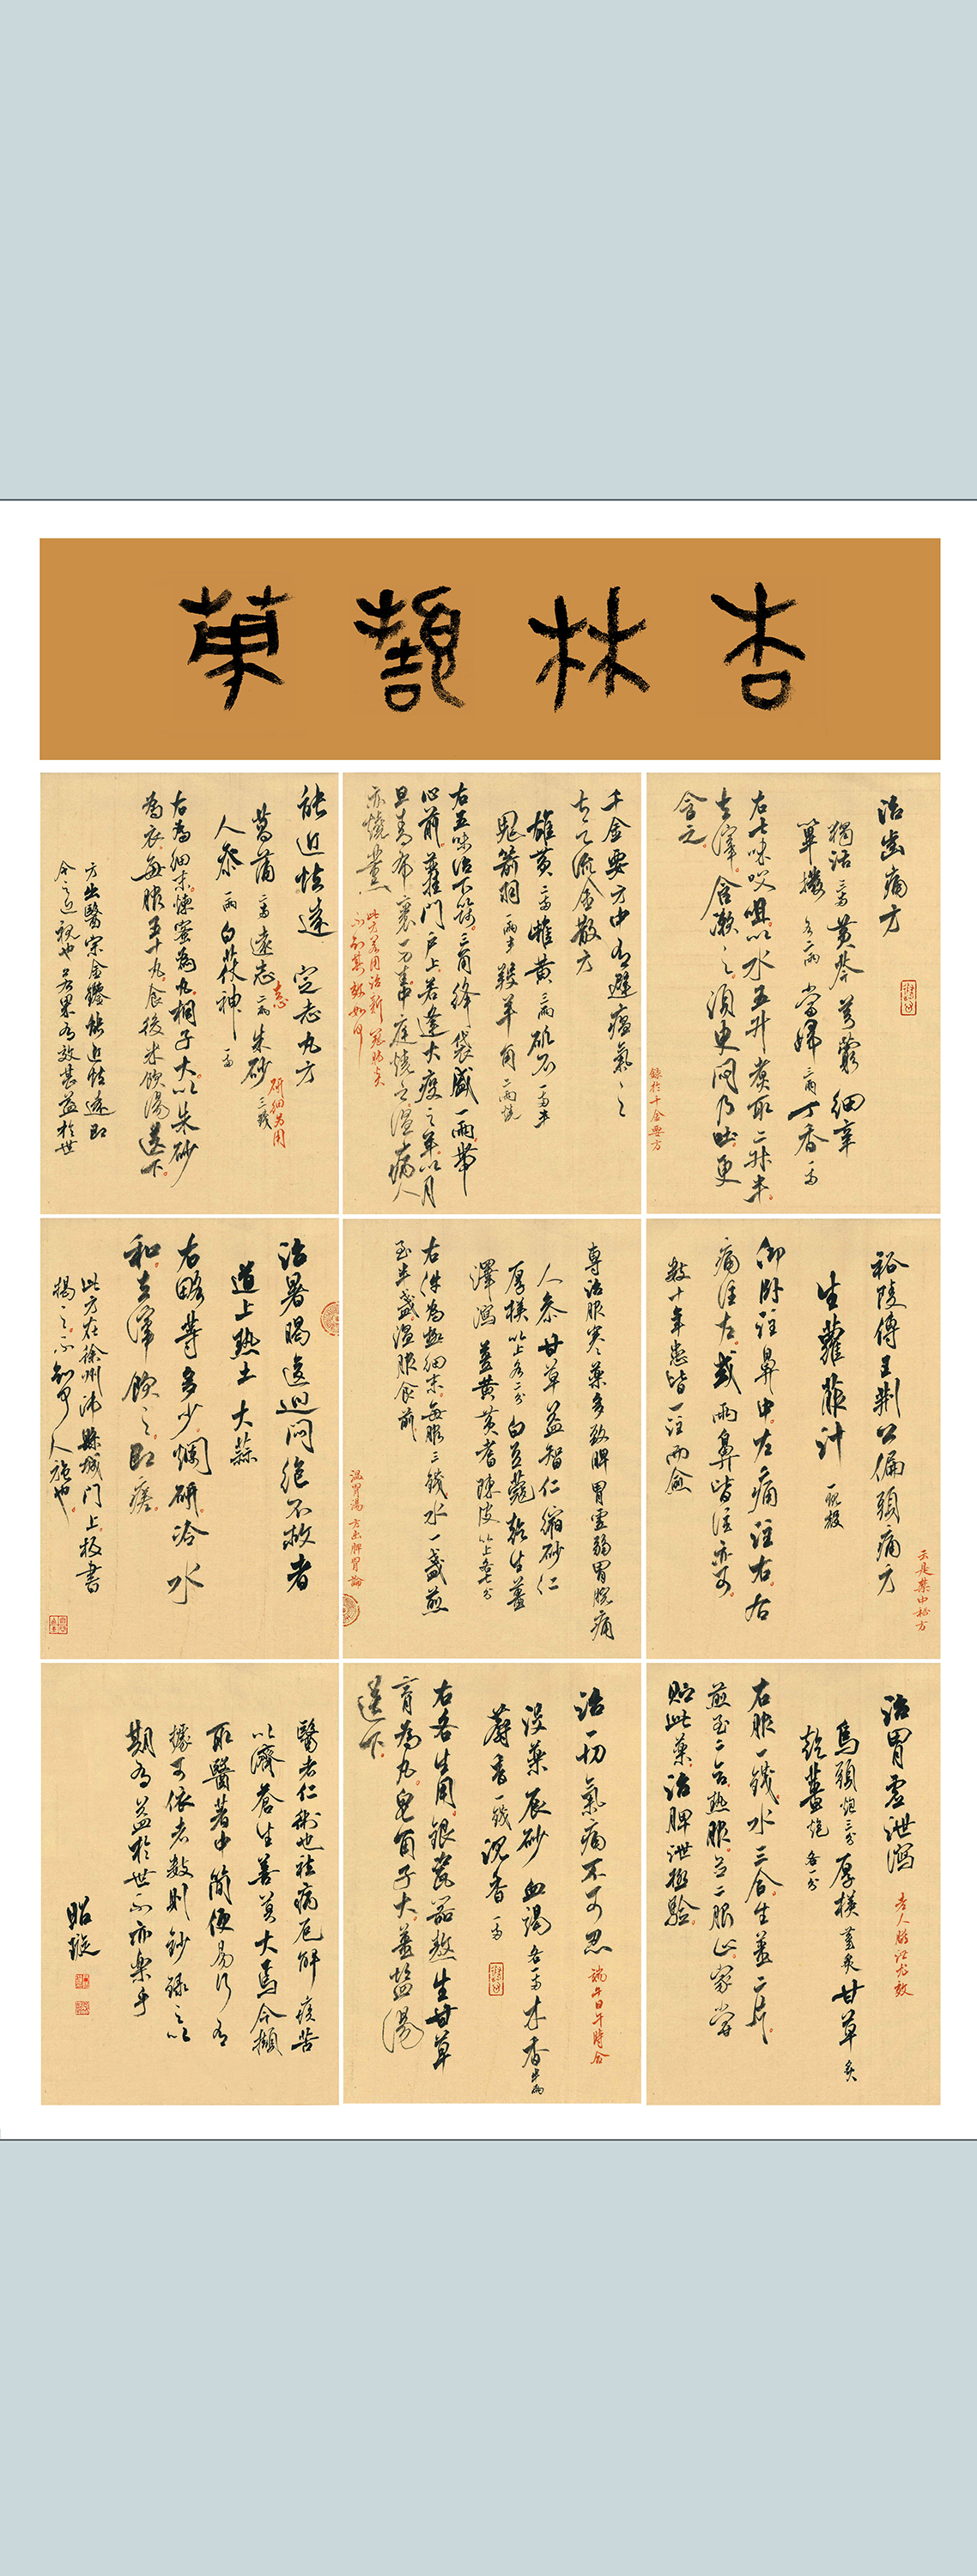 杏林擷菓
治齒痛方
獨活三兩黃芩芎藭細辛
蓽撥各二兩當歸三兩丁香一兩
右七味㕮咀以水五升煮取二升半
去滓含漱之須臾悶乃吐更
含之
錄於千金要方
千金要方中有避瘟氣之
太乙流金散方
雄黃三兩雌黃二兩礬石一兩半
鬼箭羽一兩半羖羊角二兩燒
右五味治下篩三角絳袋盛一兩帶
心前并挂門戶上若逢大疫之年以月
旦青布裹一刀圭中庭燒之溫病人
亦燒熏
此方若用治新冠肺炎
不知其效如何
能近怯遠 定志丸方
菖蒲二兩遠志二兩朱砂三錢
志
研細另用
人參一兩白茯神一兩
右為細末煉蜜為丸桐子大以朱砂
為衣每服五十丸食後米飲湯送下
方出醫宗金鑑能近怯遠即
今之近視也若果有效甚益於世
裕陵傳王荊公偏頭痛方
云是禁中秘方
生蘿菔汁一蜆殼
仰臥注鼻中左痛注右右
痛注左或兩鼻皆注亦可
數十年患皆一注而愈
專治服寒藥多致脾胃虛弱胃脘痛
人參甘草益智仁縮砂仁
厚樸以上各二分白豆蔻乾生薑
澤瀉薑黃黃耆陳皮以上各七分
右件為極細末每服三錢水一盞煎
至半盞溫服食前
溫胃湯方出脾胃論
治暑暍逡巡悶絕不救者
道上熱土大蒜
右略等多少爛研冷水
和去滓飲之即瘥
此方在徐州沛縣城門上板書
揭之不知何人施也
治胃虛泄瀉
老人臟泄尤效
烏頭炮三分厚樸薑炙甘草炙
乾薑炮各一分
右服一錢水三合生薑二片
煎至二合熱服並二服止家嘗
貯此藥治脾泄極驗
治一切氣痛不可忍
端午日午時合
沒藥辰砂血竭各一兩木香半兩
麝香一錢沉香一兩
右各生用銀瓷器熬生甘草
膏為丸皂角子大薑鹽湯
送下
醫者仁術也祛病厄解疾苦
以濟蒼生善莫大焉今擷
取醫著中簡便易行有
據可依者數則鈔錄之以
期有益於世不亦樂乎